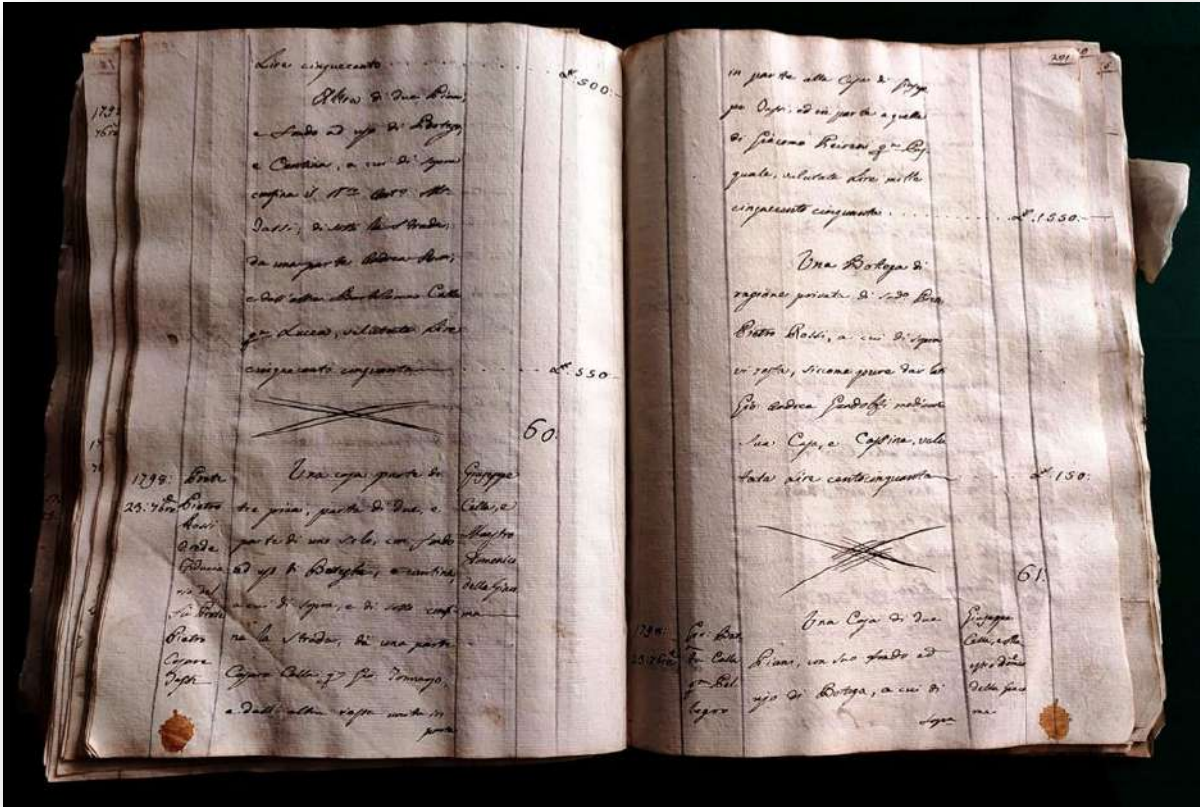 Lire cinquecento . . . . . L. 500:
Altra di due Piani,
e fondo ad uso di Bottega,
e Cantina, a cui di sopra
confina il
Tassi, di sotto la Strada,
da una parte Andrea
e dall'altra Bartolomeo Cella
qm Lucca, valutata Lire
cinquecento cinquanta . . . . L. 550
60.
1798:
23: 7bre
Prete
Pietro
Rossi
Erede
Fiducia
rio del
fu Prete
Pietro
Cesare
Tassi
Una casa parte di
tre piani, parte di due, e
parte di uno solo, con fondo
ad uso di Bottegha, e cantina,
a cui di sopra, e di sotto confi-
na la Strada, da una parte
Caspare Cella, qm Gio Tommaso,
e dall'altra resta unita in
parte
Giuseppe
Cella, e
Maestro
Domenico
della Giaco
ma
201
in parte alla Casa di Giusep
pe Tassi, ed in parte a quella
di Giacomo qm Pas-
quale, valutata Lire mille
cinquecento cinquanta . . . . . L. 1550:
Una Bottega di
ragione privata di sudo Prete
Pietro Rossi, a cui di sopra
vi resta, siccome pure dai lati
Gio: Andrea Gandolfi mediante
sua Casa, e Cassina, valu
tata Lire centocinquanta L. 150:
61.
1798:
23: 7bre
Gio: Bat
ta Cella
qm Pel
legro
Una Casa di due
Piani, con suo fondo ad
uso di Botega, a cui di
sopra
Giuseppe
Cella, e Ma
estro Domco
della Giaco
ma